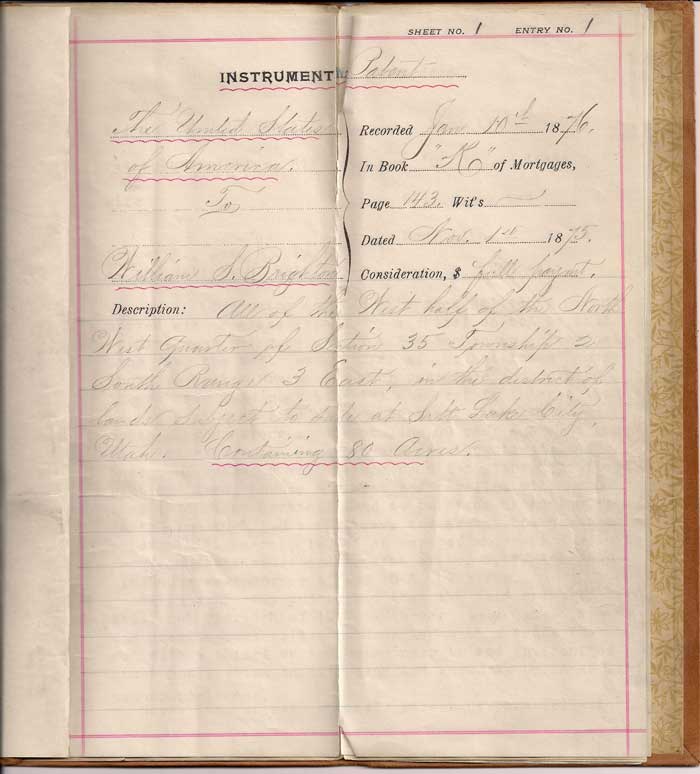 SHEET NO. 1 ENTRY NO. 1
INSTRUMENT Patent
The United States
of America.
To
William S. Brighton
Recorded Jan 10th 1876.
In Book "K" of Mortgages,
Page 143. Wit's
Dated Nov. 1st 1875.
Consideration, $ full paymt.
Description: All of the West half of the North
West Quarter of Section 35 Township 2
South Range 3 East, in the district of
lands subject to sale at Salt Lake City,
Utah. Containing 80 Acres.